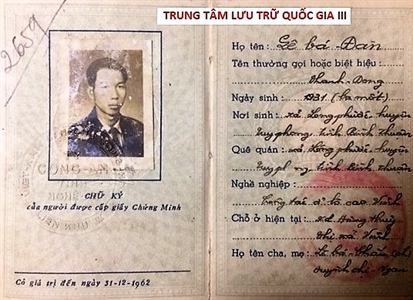 TRUNG TÂM LƯU TRỮ QUỐC GIA III
2659
CHỮ KÝ
của người được cấp giấy Chứng Minh
Có giá trị đến ngày 31-12-1962
Họ tên: Lê bá Đan
Tên thường gọi hoặc biệt hiệu:
Thanh
Ngày sinh: 1931 (ba mốt)
Nơi sinh: xã Long phước huyện
Tuy phong tỉnh Bình Thuận
Quê quán: xã Long phước huyện
tỉnh Bình Thuận
Nghề nghiệp:
Chỗ ở hiện tại: xã Hưng Thủy
thị xã Vinh
Họ tên cha, mẹ: Lê bá
Huỳnh thị